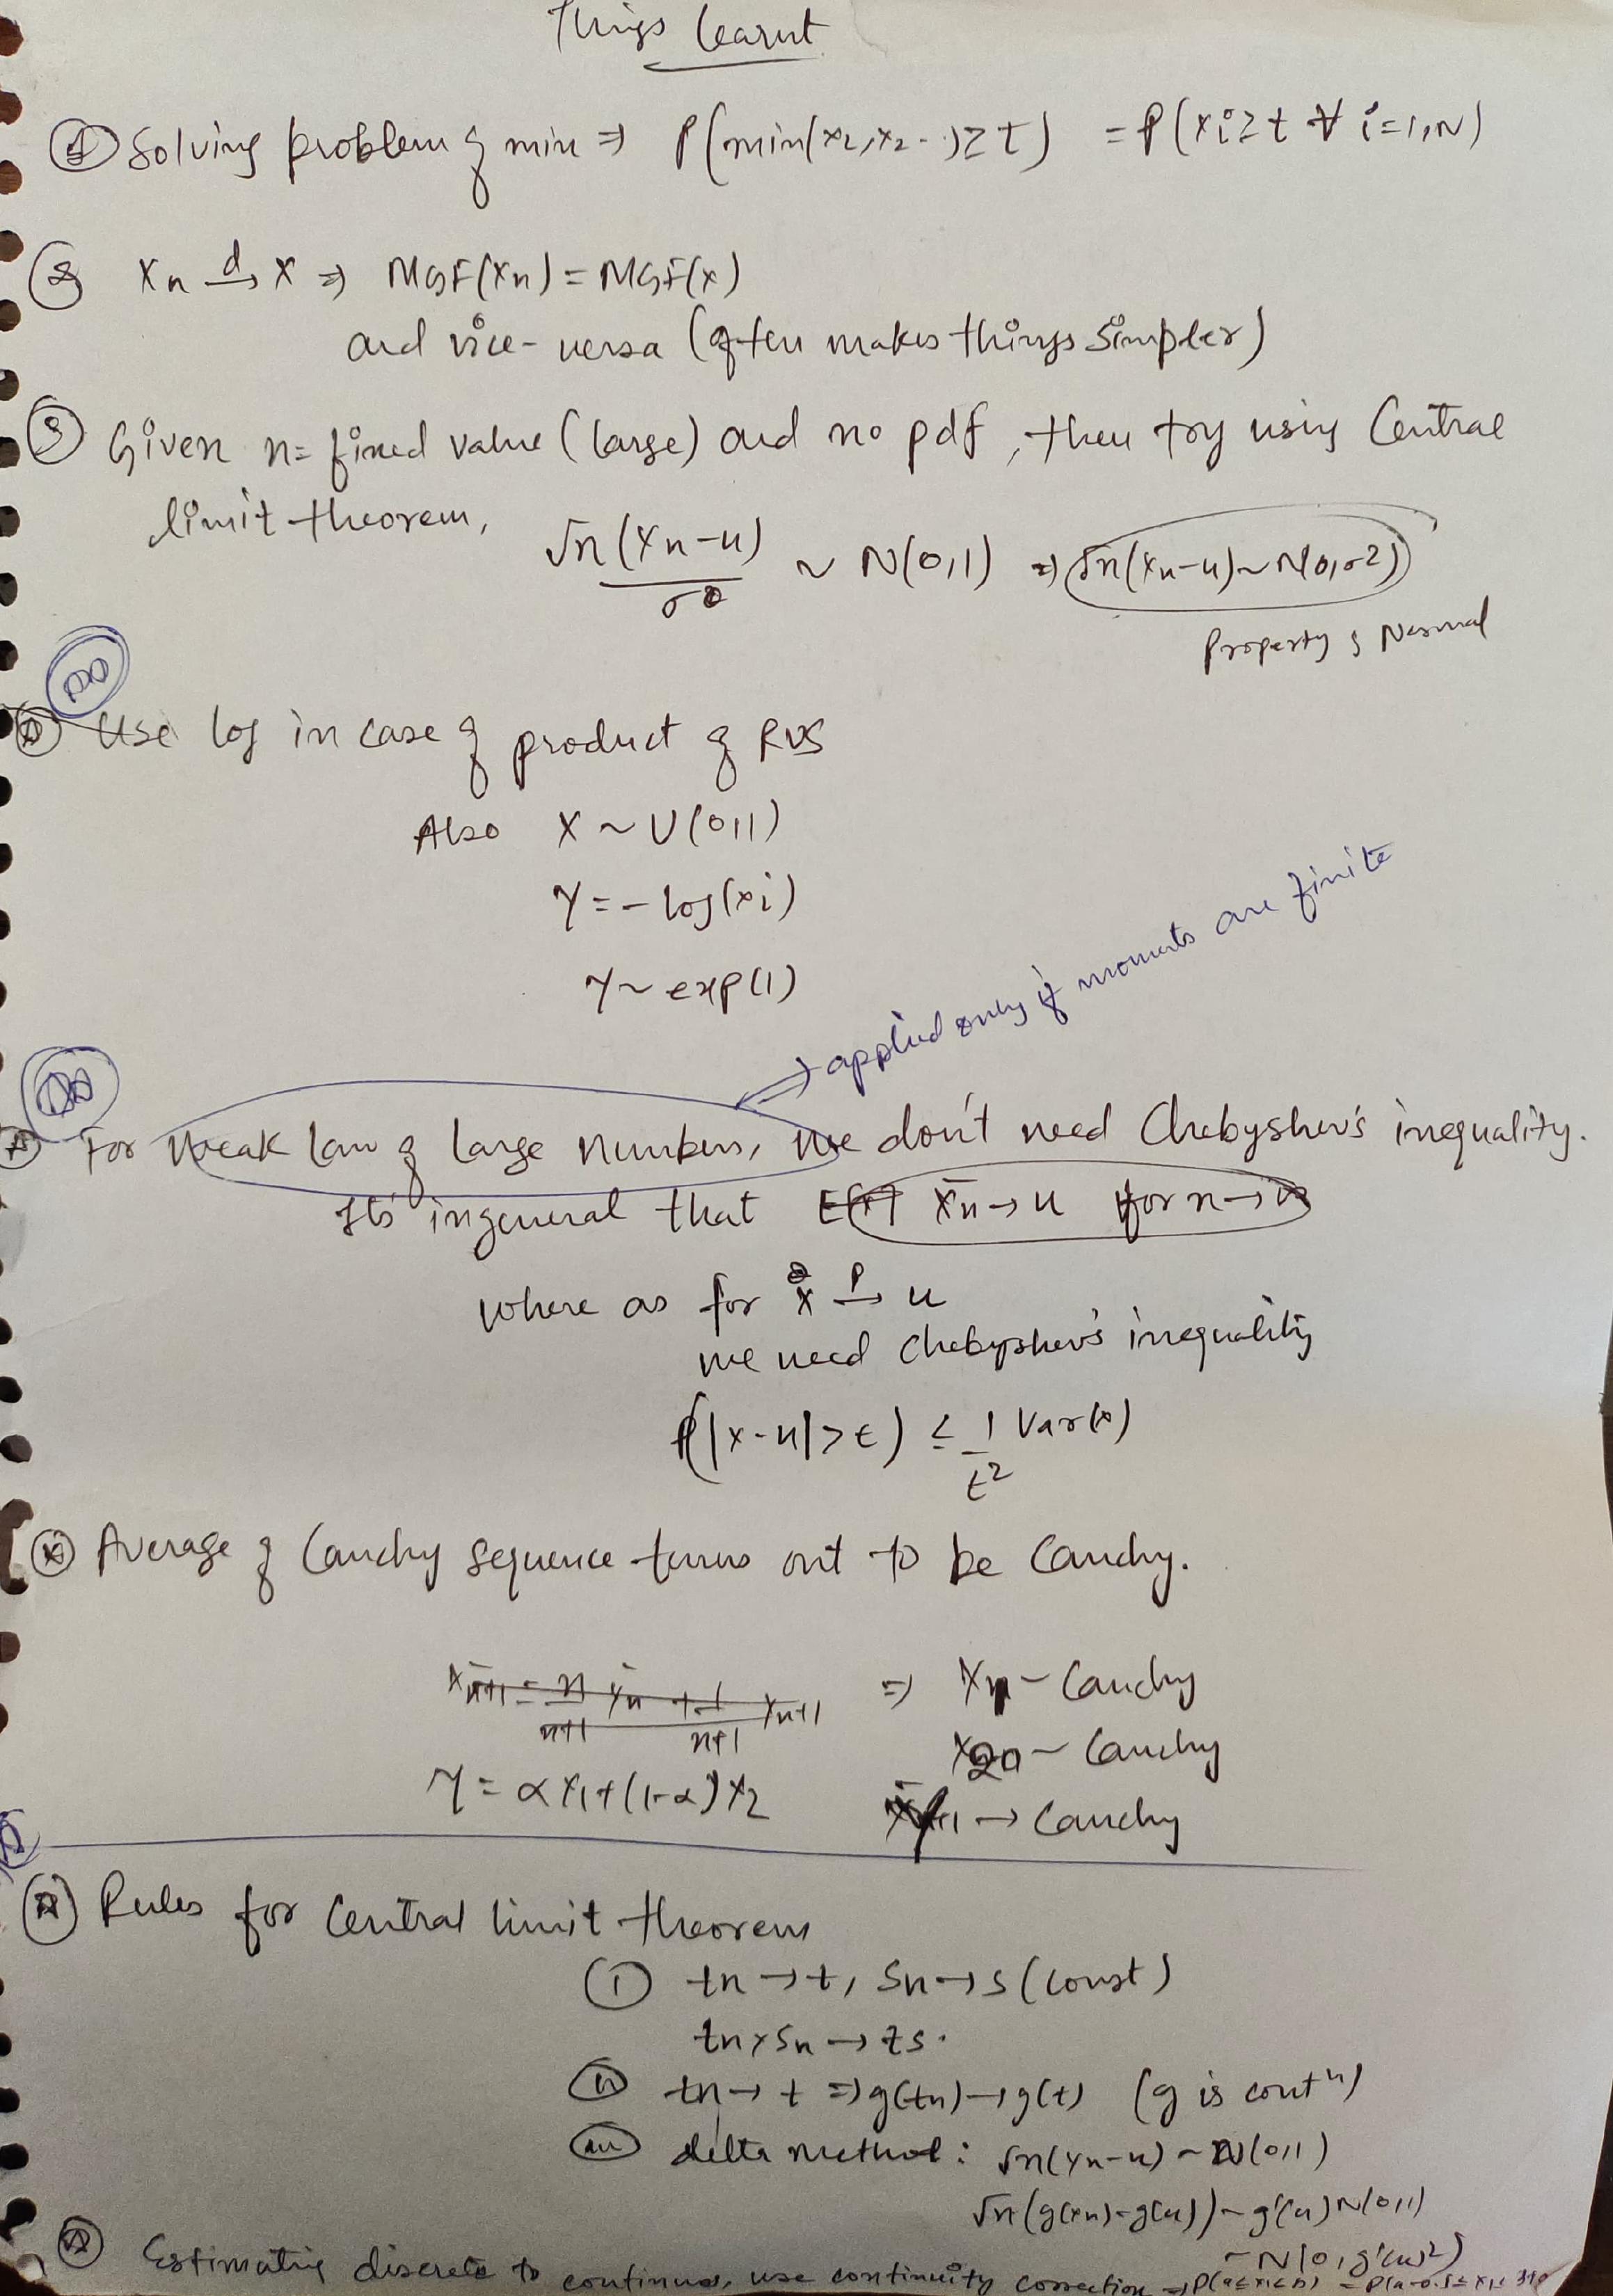 Things learnt
Solving problem of min ⇒ P(min(x1,x2..)≥t) = P(xi≥t ∀ i=1,N)
Xn →d X ⇒ MGF(Xn) = MGF(X)
and vice-versa (often makes things simpler)
Given n= fixed value (large) and no pdf, then try using Central
limit theorem, √n(Xn-u)/σ ~ N(0,1) ⇒ √n(Xn-u)~N(0,σ2)
Property of Normal
Use log in case of product of RVS
Also X ~ U(0,1)
Y = - log(xi)
Y ~ exp(1)
applied only if moments are finite
For Weak law of large numbers, we don't need Chebyshev's inequality.
Its in general that X̄n → u for n → ∞
where as for X →p u
we need Chebyshev's inequality
P(|x-u|>ε) ≤ 1/ε2 Var(x)
Average of Cauchy sequence turns out to be Cauchy.
X̄n+1 = n/n+1 X̄n + 1/n+1 Xn+1 ⇒ Xn - Cauchy
X2n - Cauchy
Y = αX1+(1-α)X2 → Cauchy
Rules for Central limit theorem
(i) tn → t, Sn → s (const)
tn×Sn → ts.
(ii) tn → t ⇒ g(tn) → g(t) (g is contn)
(iii) delta method: √n(Xn-u) ~ N(0,1)
√n(g(xn)-g(u)) ~ g'(u)N(0,1)
~ N(0, g'(u)2)
Estimating discrete to continuous, use continuity correction ⇒